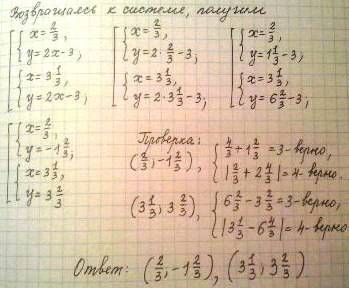 Возвращаясь к системе, получим
x=2/3, x=2/3, x=2/3,
y=2x-3; y=2·2/3-3; y=1 1/3-3;
x=3 1/3, x=3 1/3, x=3 1/3,
y=2x-3; y=2·3 1/3-3; y=6 2/3-3;
x=2/3,
y=-1 2/3;
x=3 1/3,
y=3 2/3
Проверка:
(2/3; -1 2/3), 4/3+1 2/3=3-верно,
|2/3+2 4/3|=4-верно.
(3 1/3; 3 2/3), 6 2/3-3 2/3=3-верно,
|3 1/3-6 4/3|=4-верно
Ответ: (2/3; -1 2/3), (3 1/3; 3 2/3).